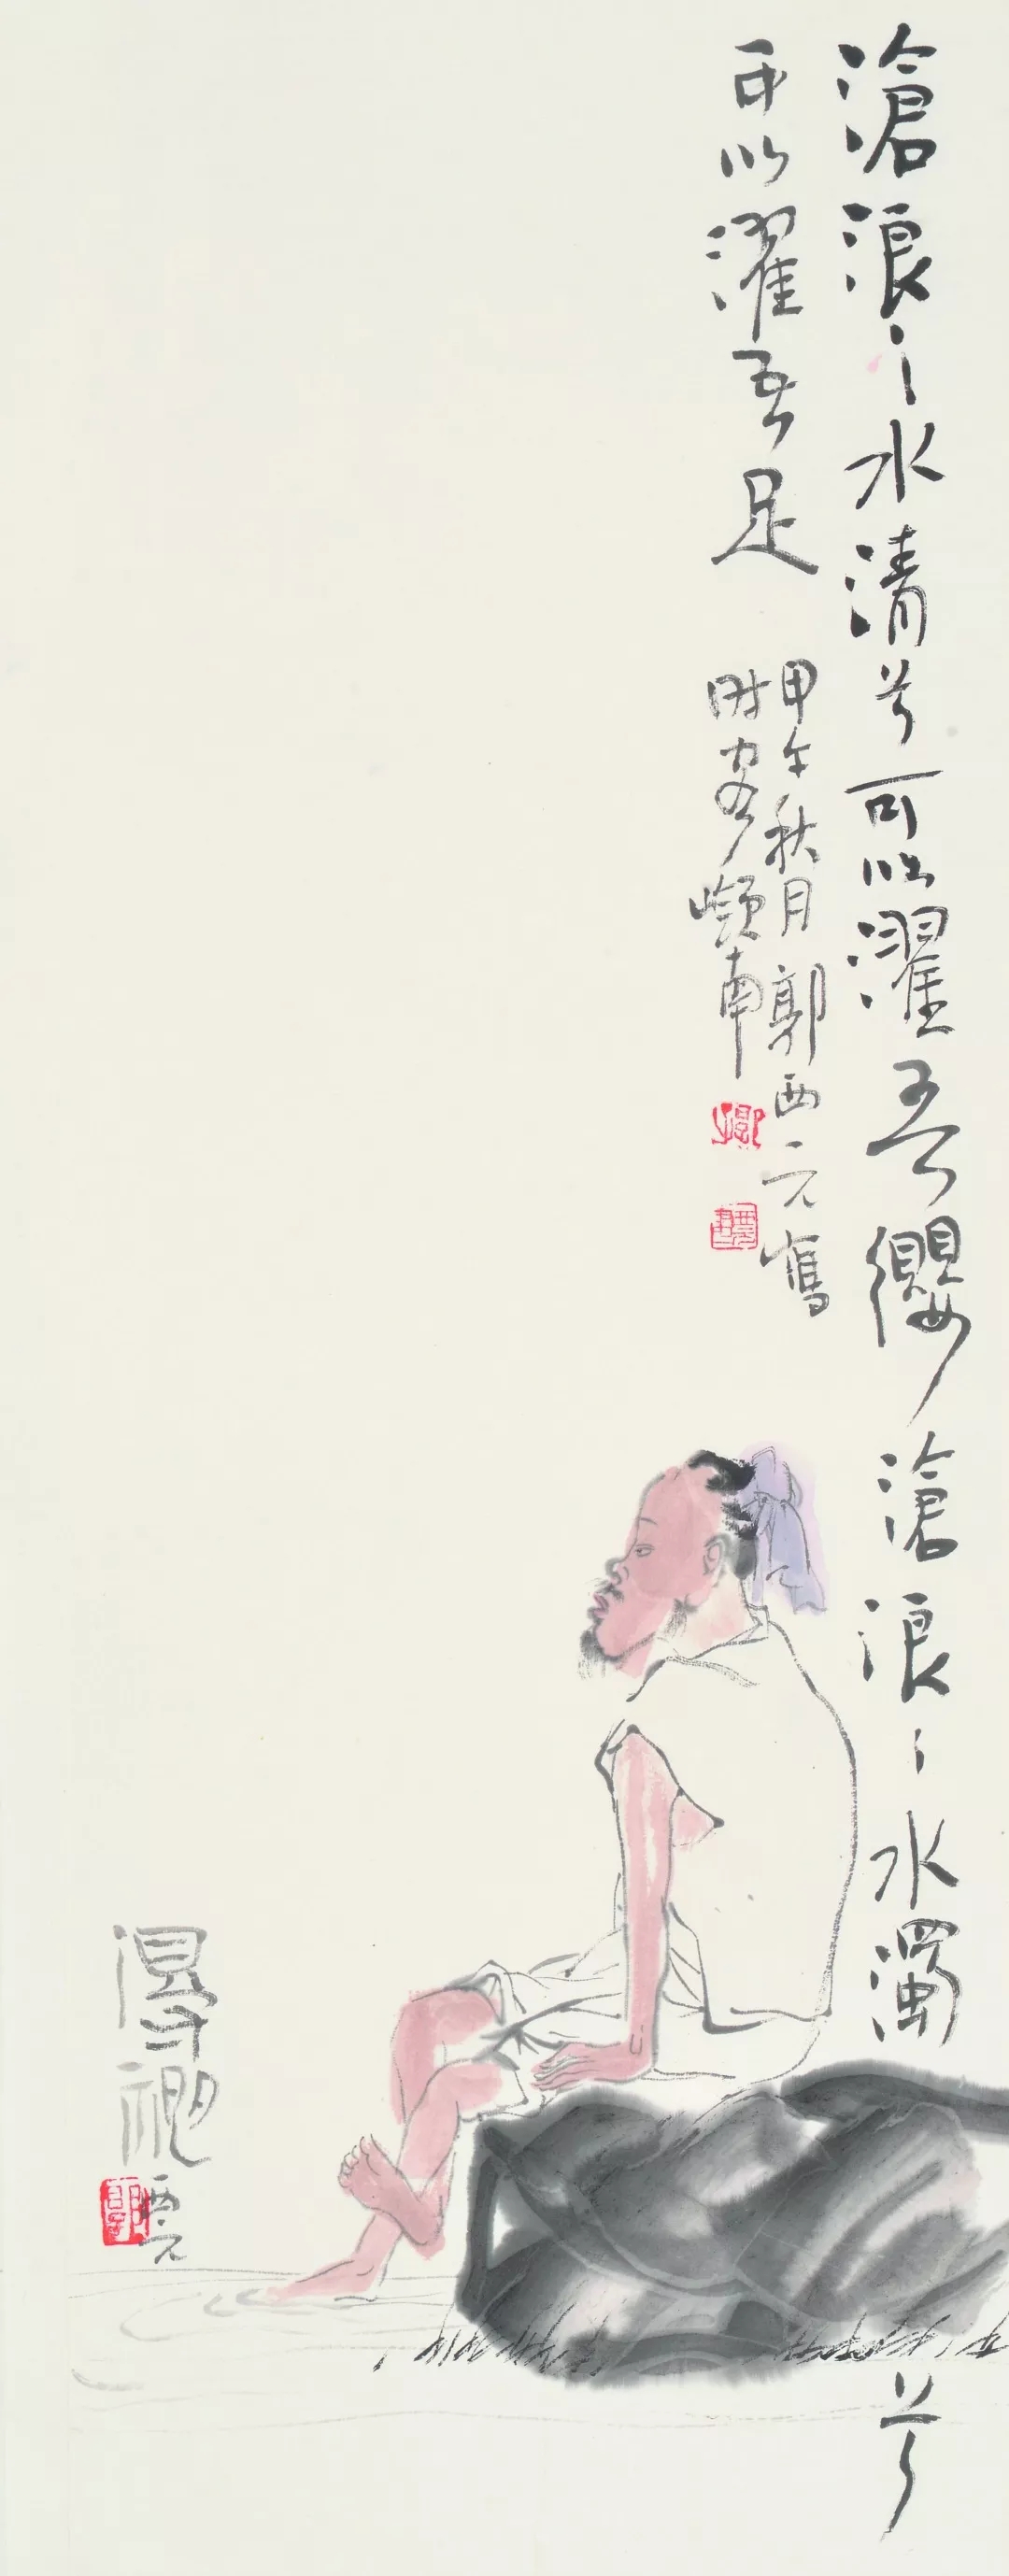 滄浪之水清兮可以濯吾纓滄浪之水濁兮
可以濯吾足
甲午秋月郭西元
時客嶺南
西元
郭